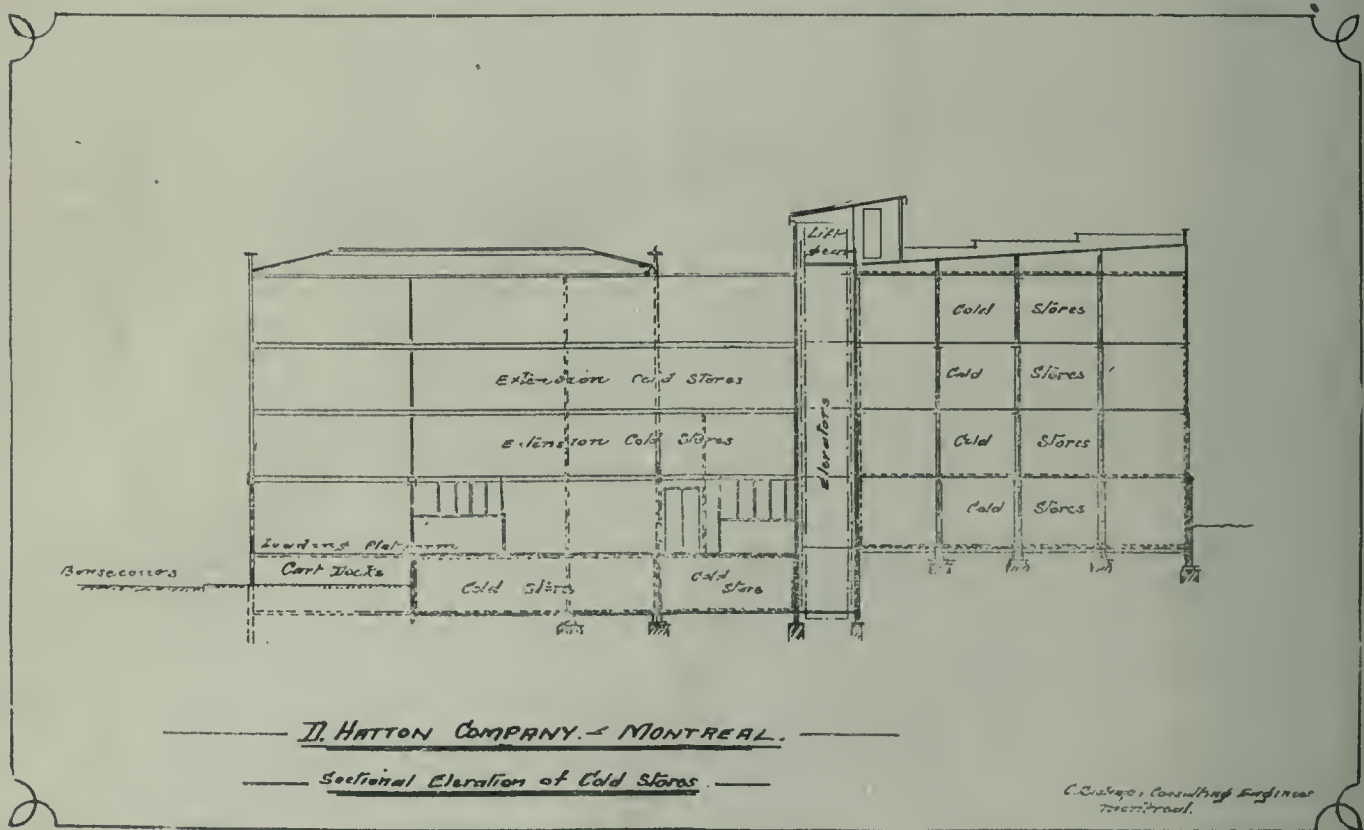 Lift
Gear
Cold Stores
Extension Cold Stores
Cold Stores
Extension Cold Stores
Elevators
Cold Stores
Cold Stores
Loading Platform
Bonsecours
Cart Docks
Cold Store
Cold
Store
D. HATTON COMPANY. - MONTREAL.
Sectional Elevation of Cold Stores
Consulting Engineer
Montreal.